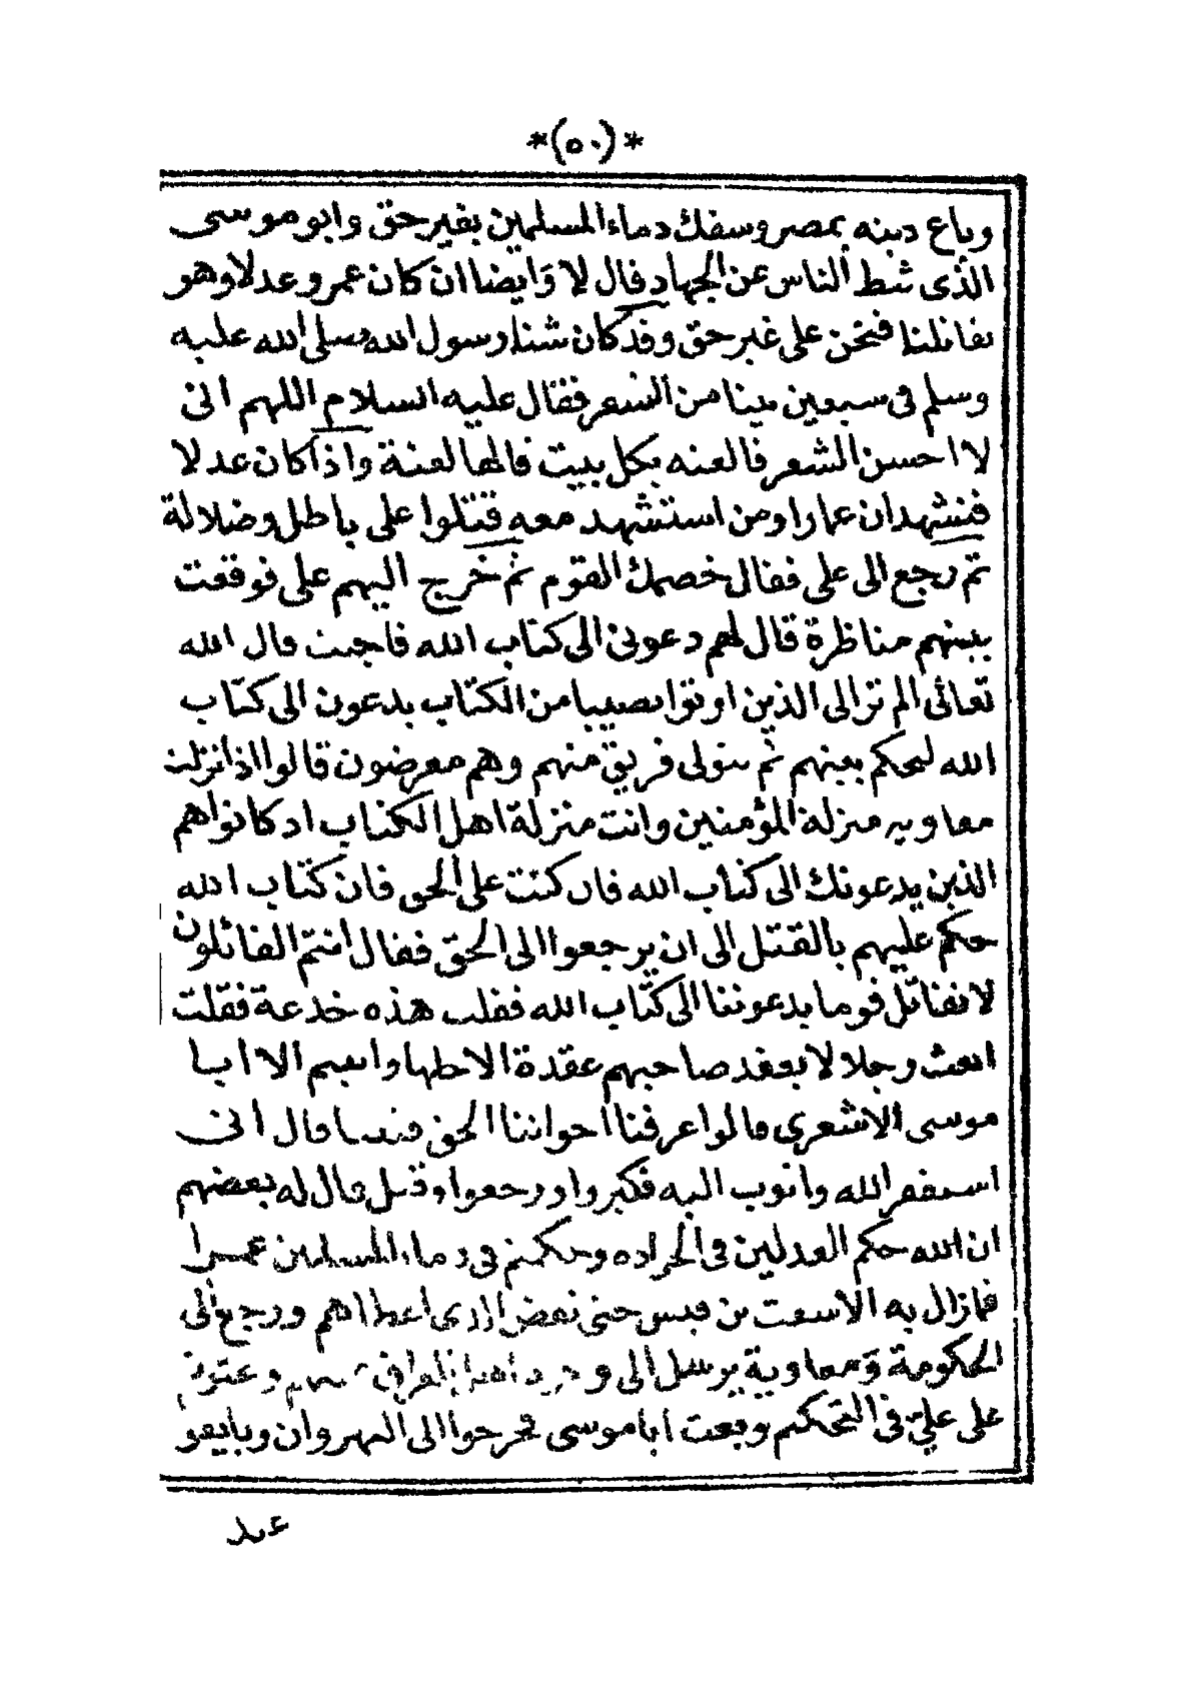 *(٥٠)*
وباع دينه بمصر وسفك دماء المسلمين بغير حق وابو موسى
الذى ثبط الناس عن الجهاد قال لا وَايضا ان كان عمرو عدلا وهو
يقاتلنا فنحن على غير حق وقد كان شتنا رسول الله صلى الله عليه
وسلم فى سبعين بيتا من الشعر فقال عليه السلام اللهم انى
لا احسن الشعر فالعنه بكل بيت قالها لعنة واذا كان عدلا
فنشهد ان عمارا ومن استشهد معه قتلوا على باطل وضلالة
ثم رجع الى على فقال خصمك القوم ثم خرج اليهم على فوقعت
بينهم مناظرة قال لهم دعونى الى كتاب الله فاجبت قال الله
تعالى الم تر الى الذين اوتوا نصيبا من الكتاب يدعون الى كتاب
الله ليحكم بينهم ثم يتولى فريق منهم وهم معرضون قالوا اذا نزلت
معاويه منزلة المؤمنين وانت منزلة اهل الكتاب اذ كانوا هم
الذين يدعونك الى كتاب الله فان كنت على الحق فان كتاب الله
حكم عليهم بالقتل الى ان يرجعوا الى الحق فقال انتم القائلون
لا نقاتل قوما يدعوننا الى كتاب الله فقلت هذه خدعة فقلت
ابعث رجلا لا يعقد صاحبهم عقدة الا حلها وابيتم الا ابا
موسى الاشعرى قالوا عرفنا اخواننا الحق قال انى
استغفر الله واتوب اليه فكبروا ورجعوا وقيل قال له بعضهم
ان الله حكم العدلين فى الجراده وحكمتم فى دماء المسلمين عمرا
فمازال به الاشعث بن قيس حتى نقض الذى اعطاهم ورجع الى
الحكومة وَمعاوية يرسل الى وجوه اهل العراق وعتوبى
على علىّ فى التحكيم وبعث ابا موسى فخرجوا الى النهروان وبايعو
عبد